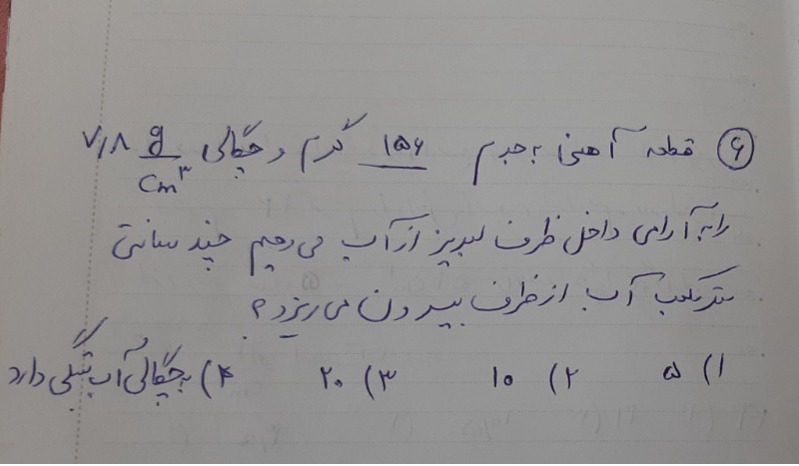 ۶) قطعه آهنی به جرم ۱۵۶ گرم و چگالی ۷/۸ g/cm³
را به آرامی داخل ظرف لبریز از آب می دهیم چند سانتی
متر مکعب آب از ظرف بیرون می ریزد؟
۱) ۵ ۲) ۱۰ ۳) ۲۰ ۴) به چگالی آب بستگی دارد